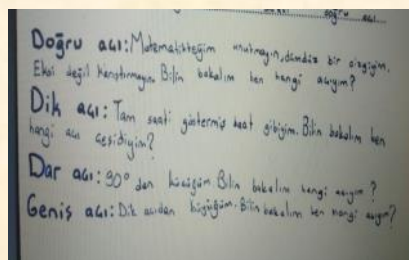 doğru açı.
Doğru açı: Matematikteyim unutmayın, dümdüz bir çizgiyim.
Eksi değil karıştırmayın. Bilin bakalım ben hangi açıyım?
Dik açı: Tam saati göstermiş saat gibiyim. Bilin bakalım ben
hangi açı çeşidiyim?
Dar açı: 90° den küçüğüm. Bilin bakalım hangi açıyım?
Geniş açı: Dik açıdan büyüğüm. Bilin bakalım ben hangi açıyım?